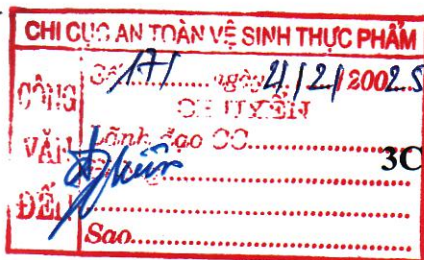 CHI CỤC AN TOÀN VỆ SINH THỰC PHẨM
CÔNG VĂN ĐẾN
Số 171 ngày 4/2/2002.5
CHUYỂN
Lãnh đạo CC
3C
Sao